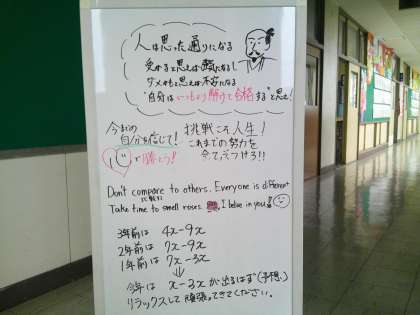 人は思った通りになる
受かると思えば顔になるし
ダメかもと思えば不安になる
"自分はいつもより解けて合格する"と思え!
今までの
自分を信じて!
で勝とう!
挑戦こそ人生!
これまでの努力を
全てぶつけろ!!
Don't compare to others. Everyone is different
Take time to smell roses. I belive in you!
3年前は 4x-9x
2年前は 7x-9x
1年前は 7x-3x
↓
今年は x-3x が出るはず(予想。)
リラックスして頑張ってきてください。